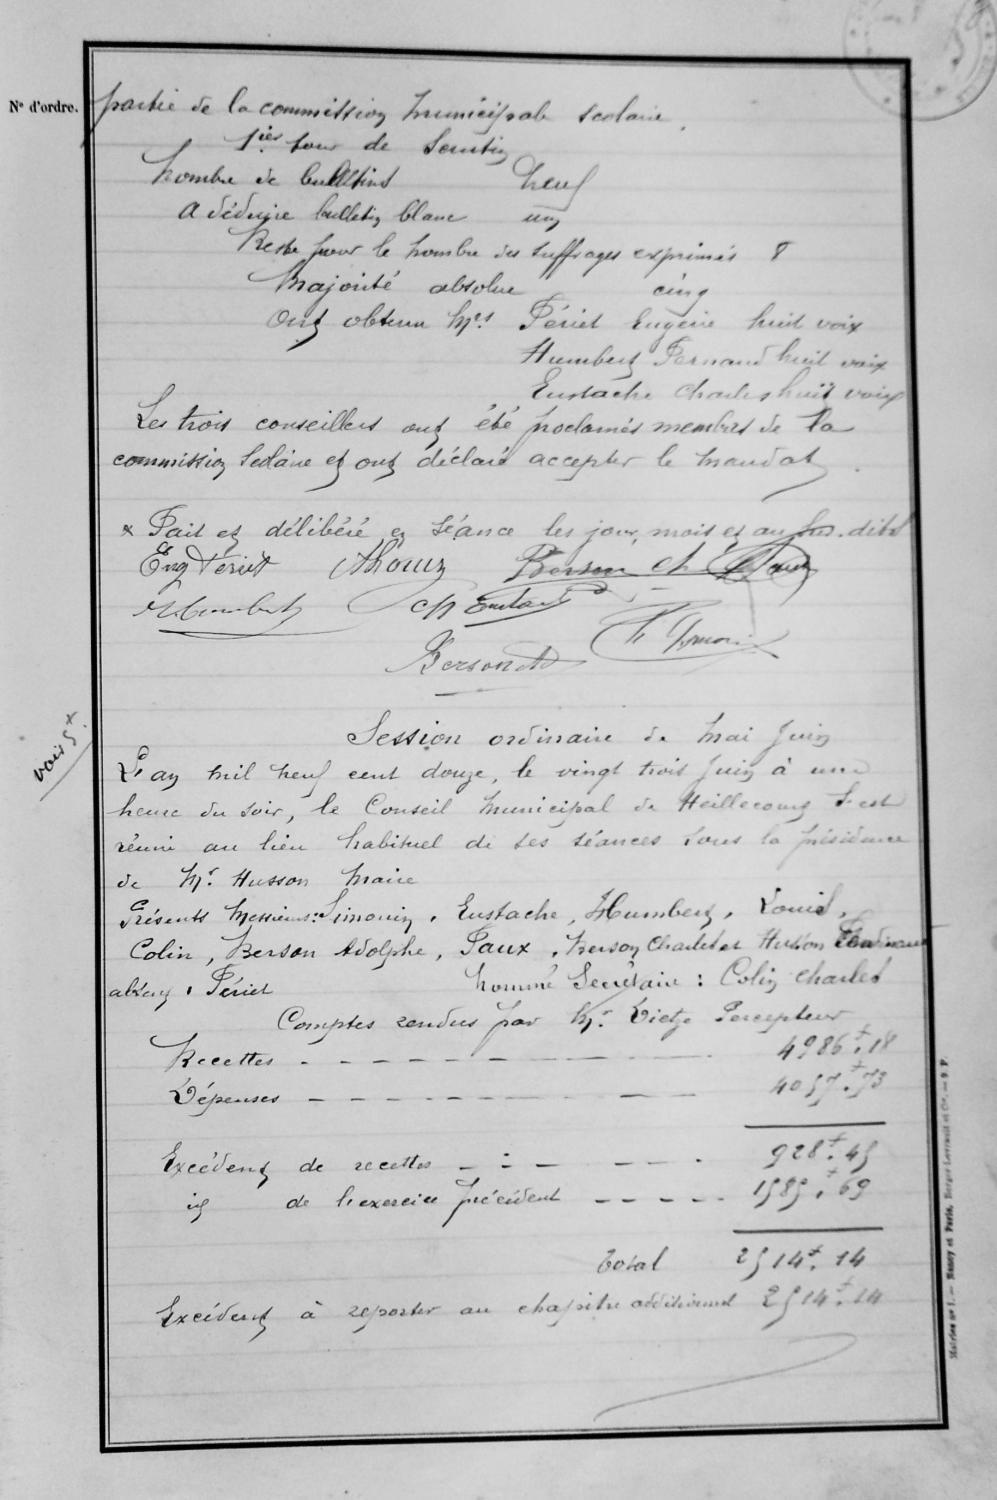 N° d'ordre.
partie de la commission municipale scolaire.
1ier tour de scrutin
Nombre de bulletins neuf
A déduire bulletin blanc un
Reste pour le nombre des suffrages exprimés 8
Majorité absolue cinq
Ont obtenu Mrs Fériet Eugène huit voix
Humbert Fernand huit voix
Eustache Charles huit voix
Les trois conseillers ont été proclamés membres de la
commission scolaire et ont déclaré accepter le mandat.
x Fait et délibéré en séance les jour, mois et an sus-dits
Eug Fériet ALouis Berson ch
Humbert ch Eustache
Berson Ad
voir 5 x
Session ordinaire de Mai Juin
L'an mil neuf cent douze, le vingt trois Juin à une
heure du soir, le Conseil Municipal de Heillecourt s'est
réuni au lieu habituel de ses séances sous la présidence
de Mr Husson Maire
Présents Messieurs: Simonin, Eustache, Humbert, Louis,
Colin, Berson Adolphe, Faux, Berson Charles et Husson
absent, Fériet Nommé Secrétaire : Colin Charles
Comptes rendus par Mr Dietze Percepteur
Recettes - - - - - - - - 4986f.18
Dépenses - - - - - - - - 4057f.73
928f.45
Excédent de recettes - - - - - -
id de l'exercice précédent - - - - - 1585f.69
Total 2514f.14
Excédent à reporter au chapitre additionnel 2514f.14
Mairies n° 1. — Nancy et Paris, Berger-Levrault et Cie. — 9 F.